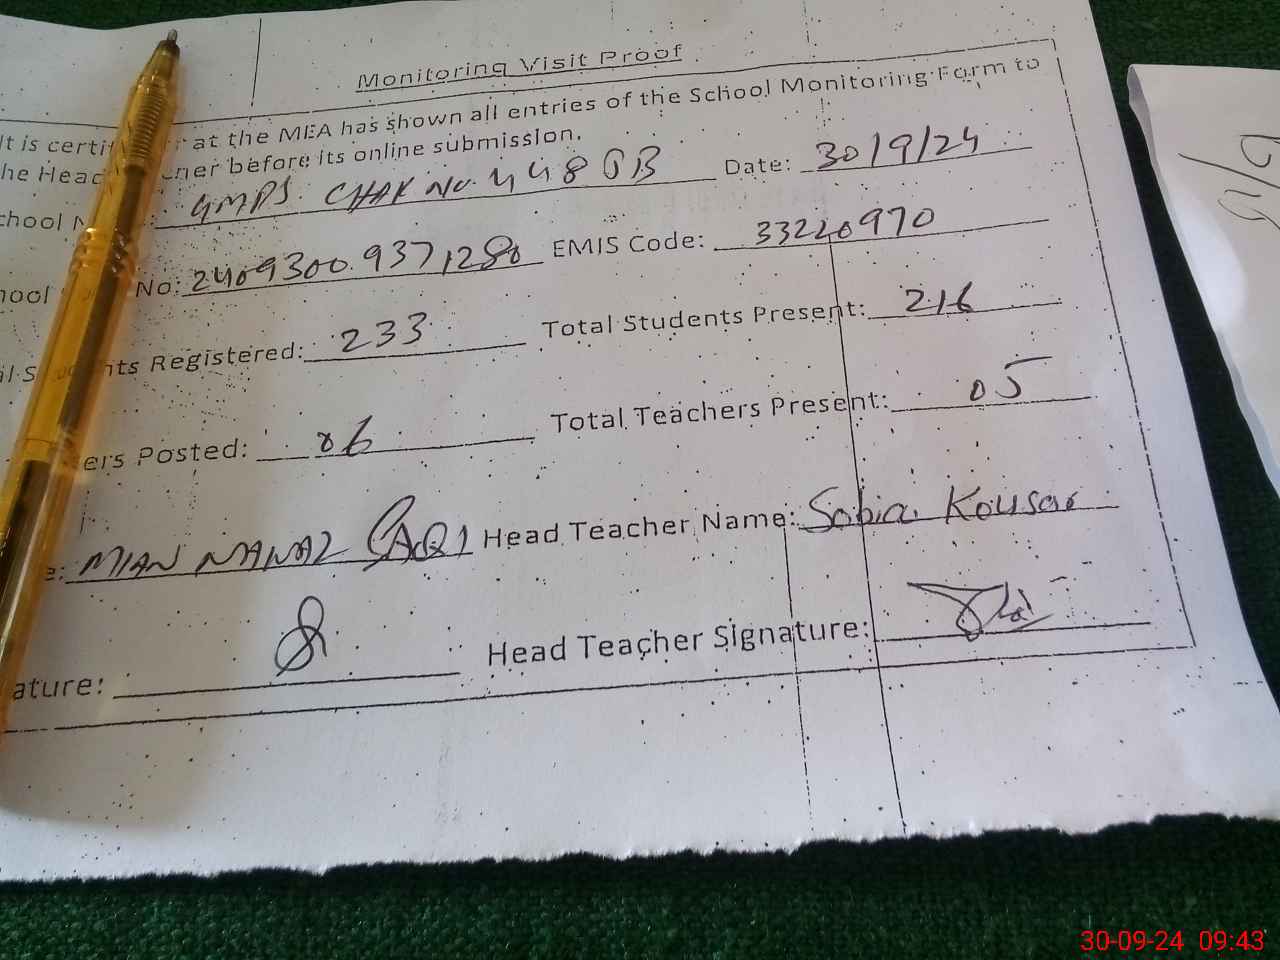 Monitoring Visit Proof
It is certi at the MEA has shown all entries of the School Monitoring Form to
he Head before its online submission.
chool GMPS. CHAK NO. 448 JB Date: 30/9/24
hool No: 2409300.9371280 EMIS Code: 33220970
nts Registered: 233 Total Students Present: 216
ers Posted: 06 Total Teachers Present: 05
e: MIAN NAWAZ Head Teacher Name: Sobia Kousar
ature: Head Teacher Signature:
30-09-24 09:43